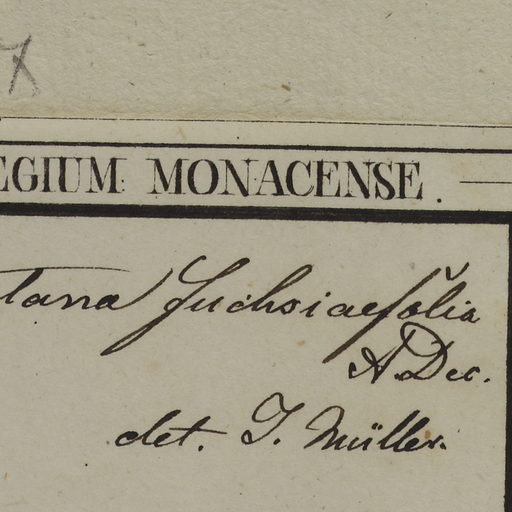 EGIUM MONACENSE.
tana fuchsiaefolia
A Dec.
det. J. Müller.